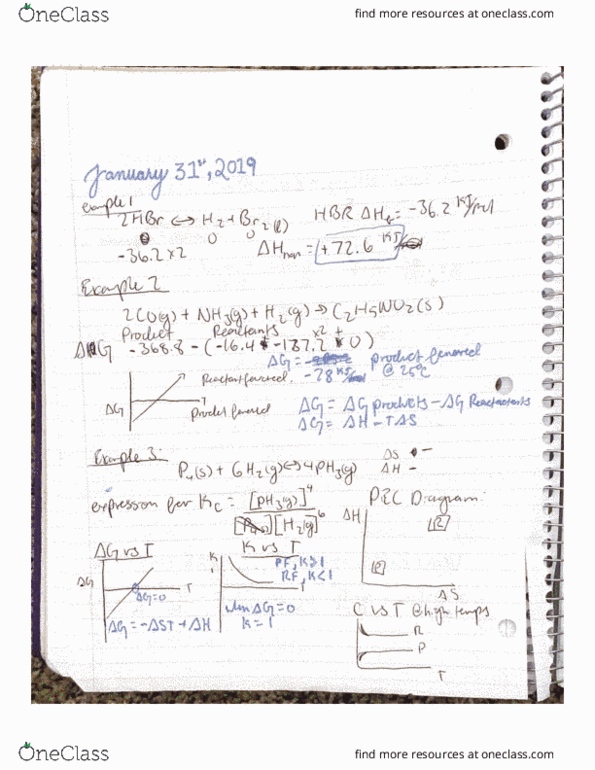 OneClass
find more resources at oneclass.com
January 31st, 2019
Example 1
2HBr ⟷ H2 + Br2(l)
HBR ΔHf = -36.2 KJ/mol
0 0
-36.2 x2
ΔHrxn = +72.6 KJ
Example 2
2CO(g) + NH3(g) + H2(g) → C2H5NO2(s)
Product Reactants x2 +
ΔG -368.8 - (-16.4 + -137.2 + 0)
ΔG =
-78 KJ
product favored
@ 25°C
Reactant favored.
ΔG
T
Product favored
ΔG = ΔG products - ΔG Reactants
ΔG = ΔH - TΔS
Example 3:
P4(s) + 6H2(g) ⟷ 4PH3(g)
ΔS -
ΔH -
expression for Kc = [PH3(g)]^4
[H2(g)]^6
PEC Diagram:
ΔH
R
P
ΔS
ΔG vs T
ΔG
T
ΔG=0
ΔG = -ΔST + ΔH
K vs T
K
1
PF, K>1
RF, K<1
T
when ΔG = 0
K = 1
C vs T @ high temps
R
P
T
OneClass
find more resources at oneclass.com